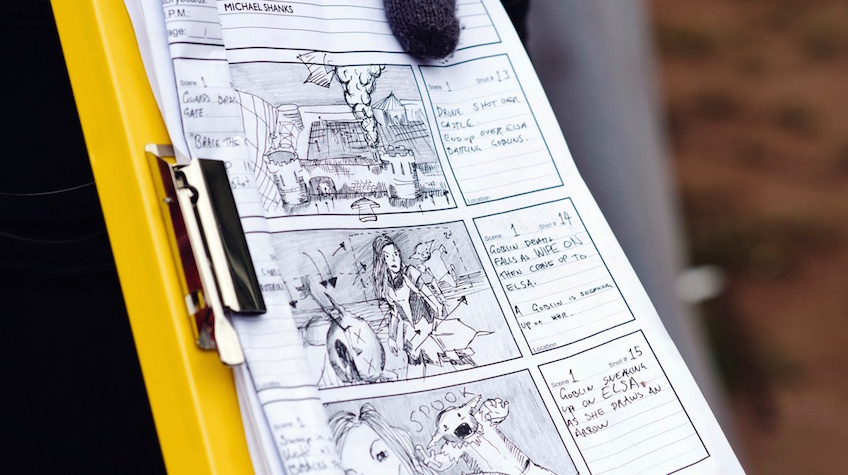 P.M.:
age:
MICHAEL SHANKS
Scene 1
GUARDS
GATE.
"BRACE THE
Scene 1 Shot # 13
DRONE SHOT OVER
CASTLE.
END UP OVER ELSA
BATTLING GOBLINS.
Location
Scene 1 Shot # 14
GOBLIN DEATH
FALLS AS WIPE ON
THEN CRANE UP TO
ELSA.
A GOBLIN IS SNEAKING
UP ON HER.
Location
SPOOK
Scene 1 Shot # 15
GOBLIN SNEAKING
UP ON ELSA
AS SHE DRAWS AN
ARROW
Location